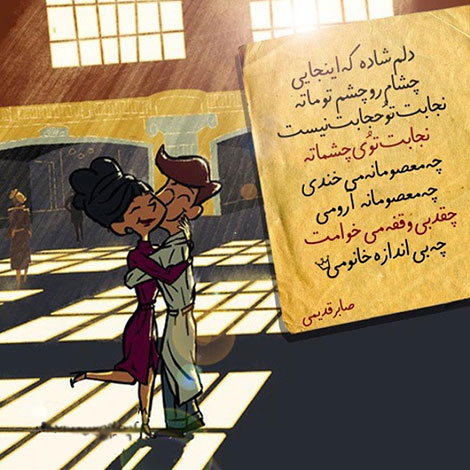 دلم شاده که اینجایی
چشام رو چشم تو ماته
نجابت تو حجابت نیست
نجابت توُی چشماته
چه معصومانه می خندی
چه معصومانه ارومی
چقد بی وقفه می خوامت
چه بی اندازه خانومی
صابر قدیمی